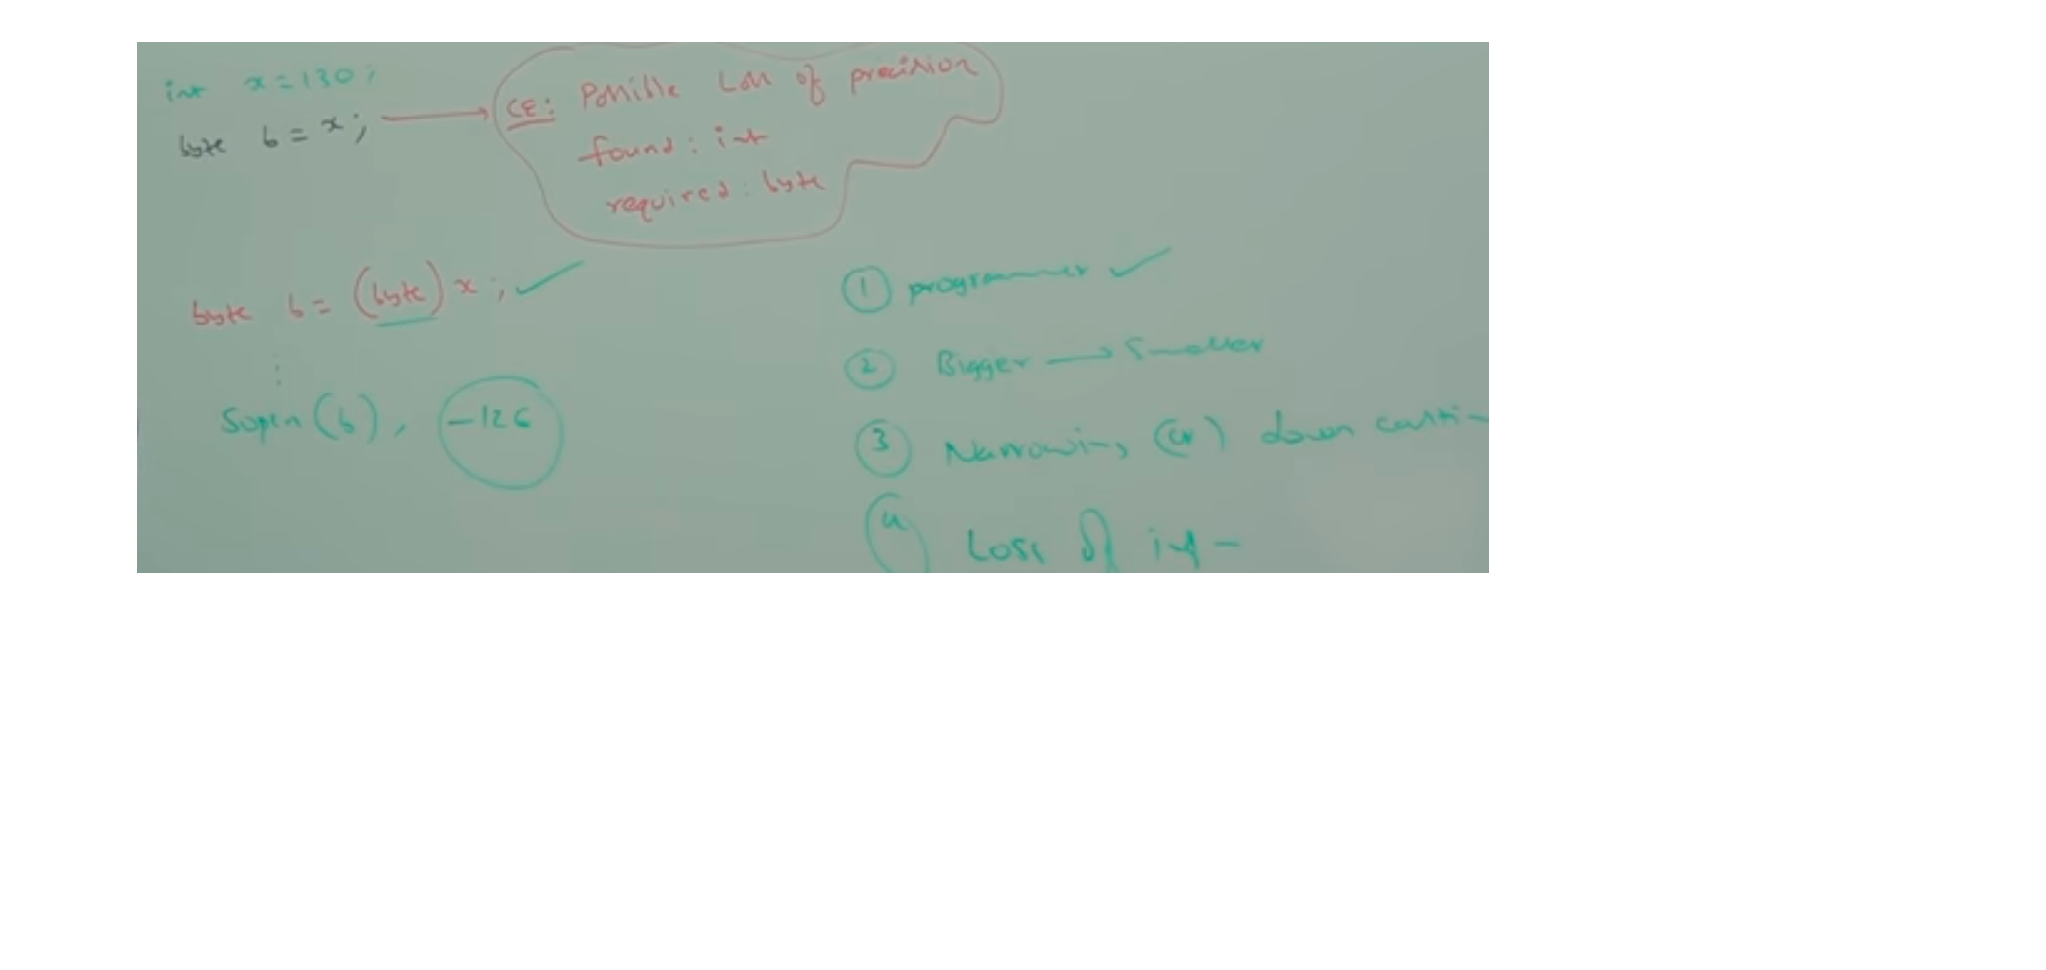 int x = 130;
byte b = x;
CE: Possible Loss of precision
found: int
required: byte
byte b = (byte) x;
Sopln(b), -126
① programmer
② Bigger → Smaller
③ Narrowing (or) down casting
④ Loss of inf